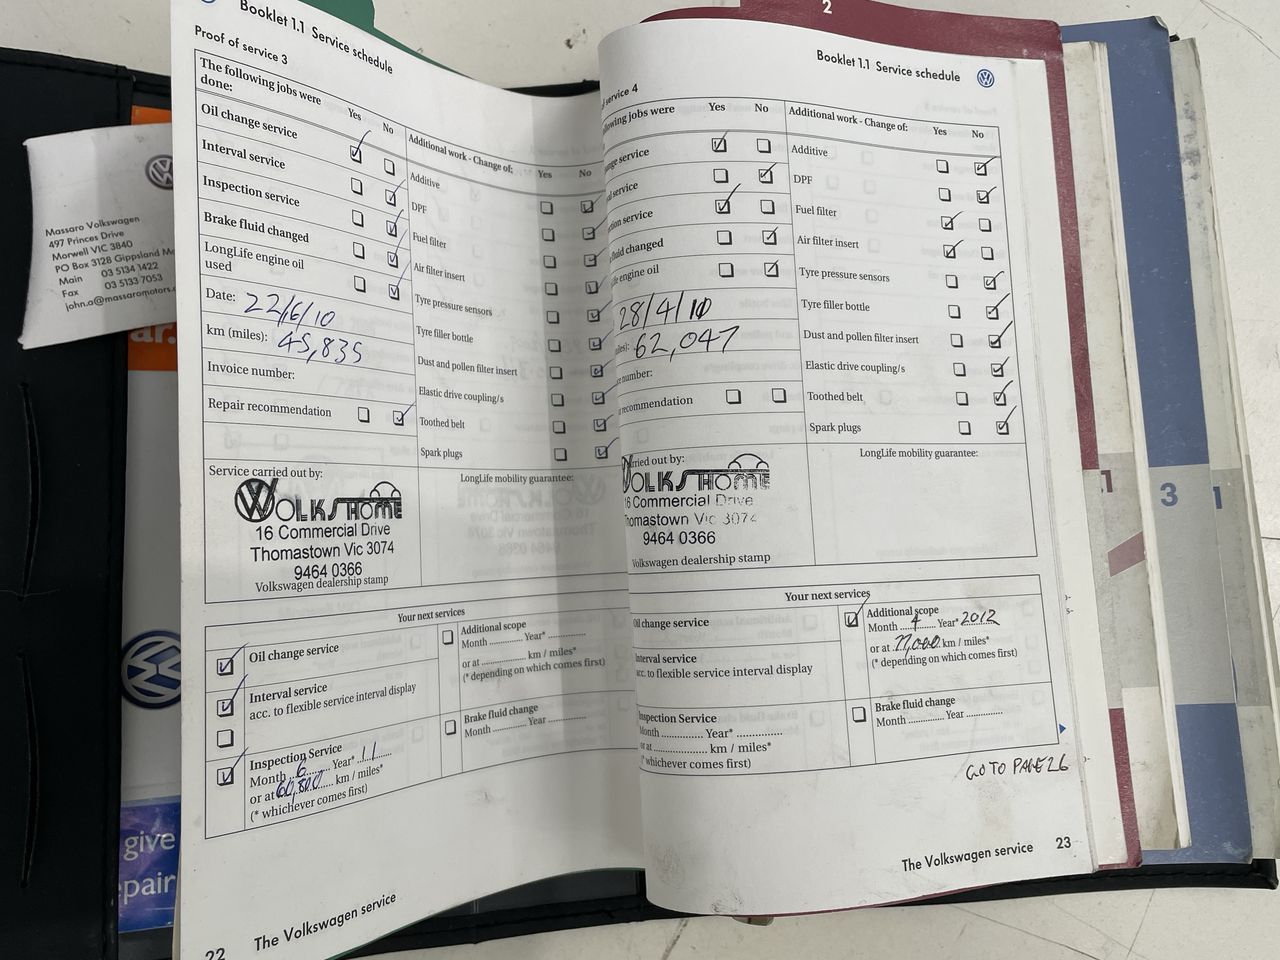 Booklet 1.1 Service schedule
Proof of service 3
The following jobs were
done:
Yes No
Oil change service
Interval service
Inspection service
Brake fluid changed
LongLife engine oil
used
Date: 22/6/10
km (miles): 45,835
Invoice number:
Repair recommendation
Additional work - Change of:
Yes No
Additive
DPF
Fuel filter
Air filter insert
Tyre pressure sensors
Tyre filler bottle
Dust and pollen filter insert
Elastic drive coupling/s
Toothed belt
Spark plugs
Service carried out by:
VOLKSHOME
16 Commercial Drive
Thomastown Vic 3074
9464 0366
Volkswagen dealership stamp
LongLife mobility guarantee:
Your next services
Oil change service
Interval service
acc. to flexible service interval display
Inspection Service
Month 6 Year* 11
or at 60,800 km / miles*
(* whichever comes first)
Additional scope
Month Year*
or at km / miles*
(* depending on which comes first)
Brake fluid change
Month Year
22 The Volkswagen service
Booklet 1.1 Service schedule
service 4
lowing jobs were
Yes No
ge service
al service
tion service
fluid changed
engine oil
28/4/10
iles): 62,047
number:
recommendation
Additional work - Change of:
Yes No
Additive
DPF
Fuel filter
Air filter insert
Tyre pressure sensors
Tyre filler bottle
Dust and pollen filter insert
Elastic drive coupling/s
Toothed belt
Spark plugs
arried out by:
VOLKSHOME
16 Commercial Drive
Thomastown Vic 3074
9464 0366
Volkswagen dealership stamp
LongLife mobility guarantee:
Your next services
Oil change service
Interval service
acc. to flexible service interval display
Inspection Service
Month Year*
or at km / miles*
(* whichever comes first)
Additional scope
Month 4 Year* 2012
or at 77,000 km / miles*
(* depending on which comes first)
Brake fluid change
Month Year
GO TO PAGE 26
The Volkswagen service 23
Massaro Volkswagen
497 Princes Drive
Morwell VIC 3840
PO Box 3128 Gippsland M
Main 03 5134 1422
Fax 03 5133 7053
john.a@massaromotors.
ar.
give
pair
2
.1
3
1